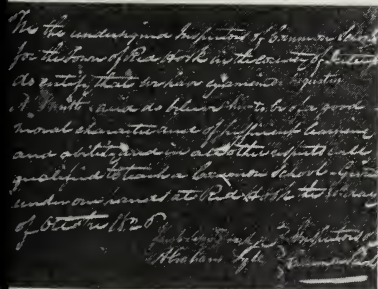 We the undersigned Inspectors of Common Schools
for the Town of Red Hook in the County of
do certify that we have examined Augustus
A. and do believe him to be of a good
moral character and of sufficient learning
and ability and in all other respects well
qualified to teach a Common School. Given
under our names at Red Hook the
of October 1826
Inspectors of
Abraham Common Schools